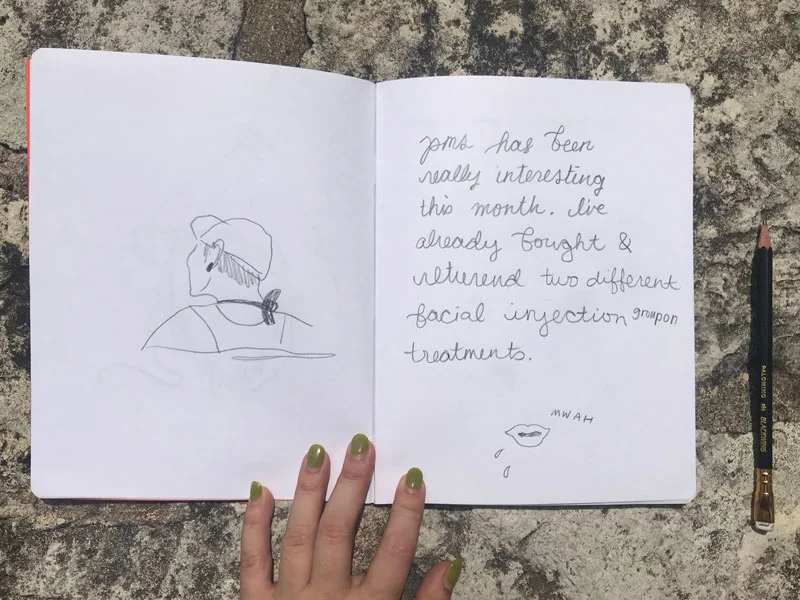 pms has been
really interesting
this month. I've
already bought &
returend two different
facial injection groupon
treatments.
MWAH
PALOMINO BLACKWING